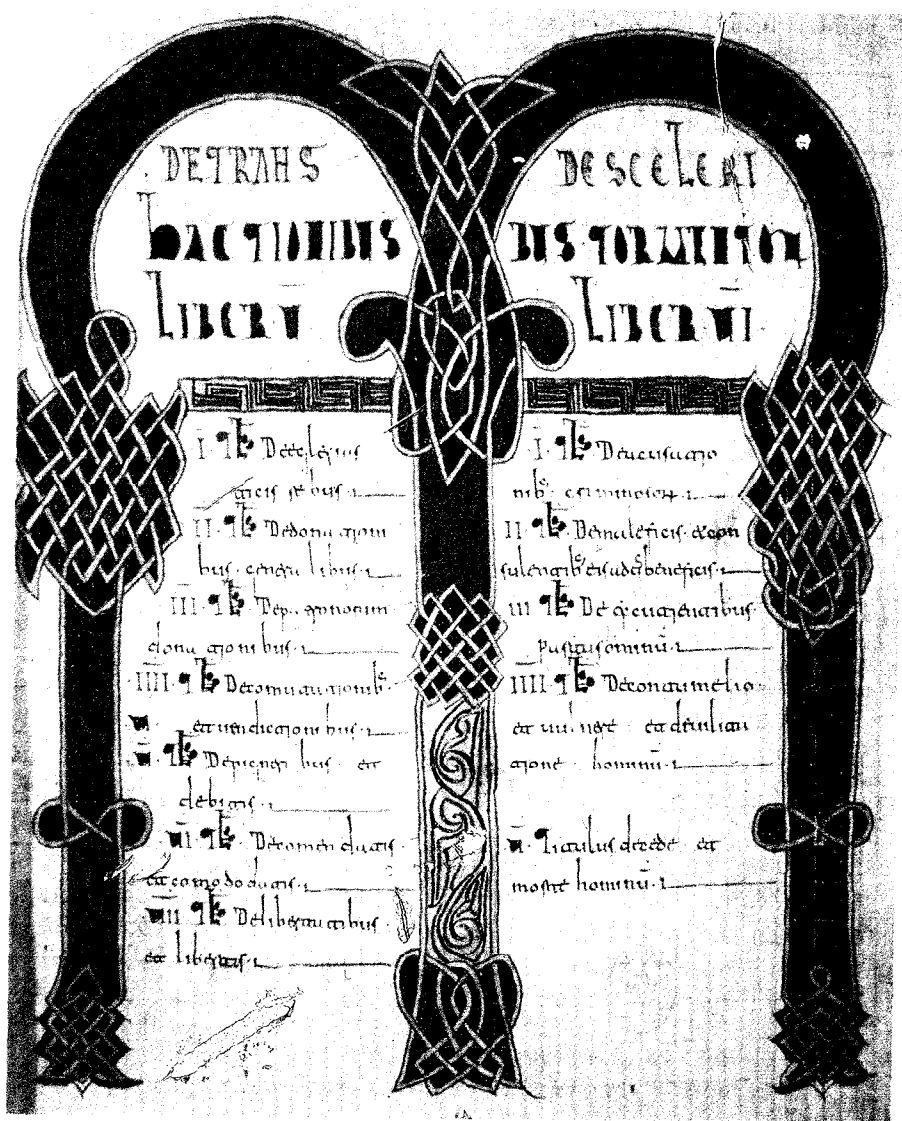 DETRANS
HACTIONIBUS
LIBER V
I TL Deeclesias
ticis rebus
II TL Dedonation
bus generalibus
III TL Depatronorum
donationibus
IIII TL Decomutationib
et vendictionibus
V TL Depigneri bus et
debitis
VI TL Decomendatis
et comodatis
VII TL Delibertatibus
et libertis
DESCELERI
BUS TORMENTOR
LIBER VI
I TL Deacusatio
nib criminosor
II TL Demaleficis et con
sulentib eis beneficis
III TL De excutientibus
partus ominū
IIII TL Decontumelio
et vulnere et debilitati
tione hominū
V Titulus decede et
morte hominū